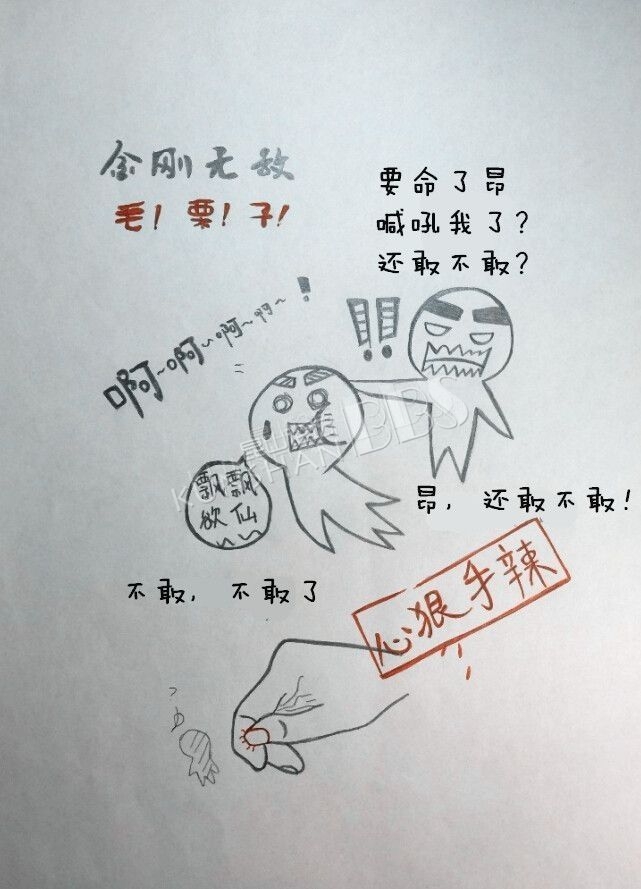 金刚无敌
毛！栗！子！
要命了昂
喊吼我了？
还敢不敢？
啊~啊~啊~啊~！
!!
飘飘
欲仙
昂，还敢不敢！
不敢，不敢了
心狠手辣
KUNSHAN BBS